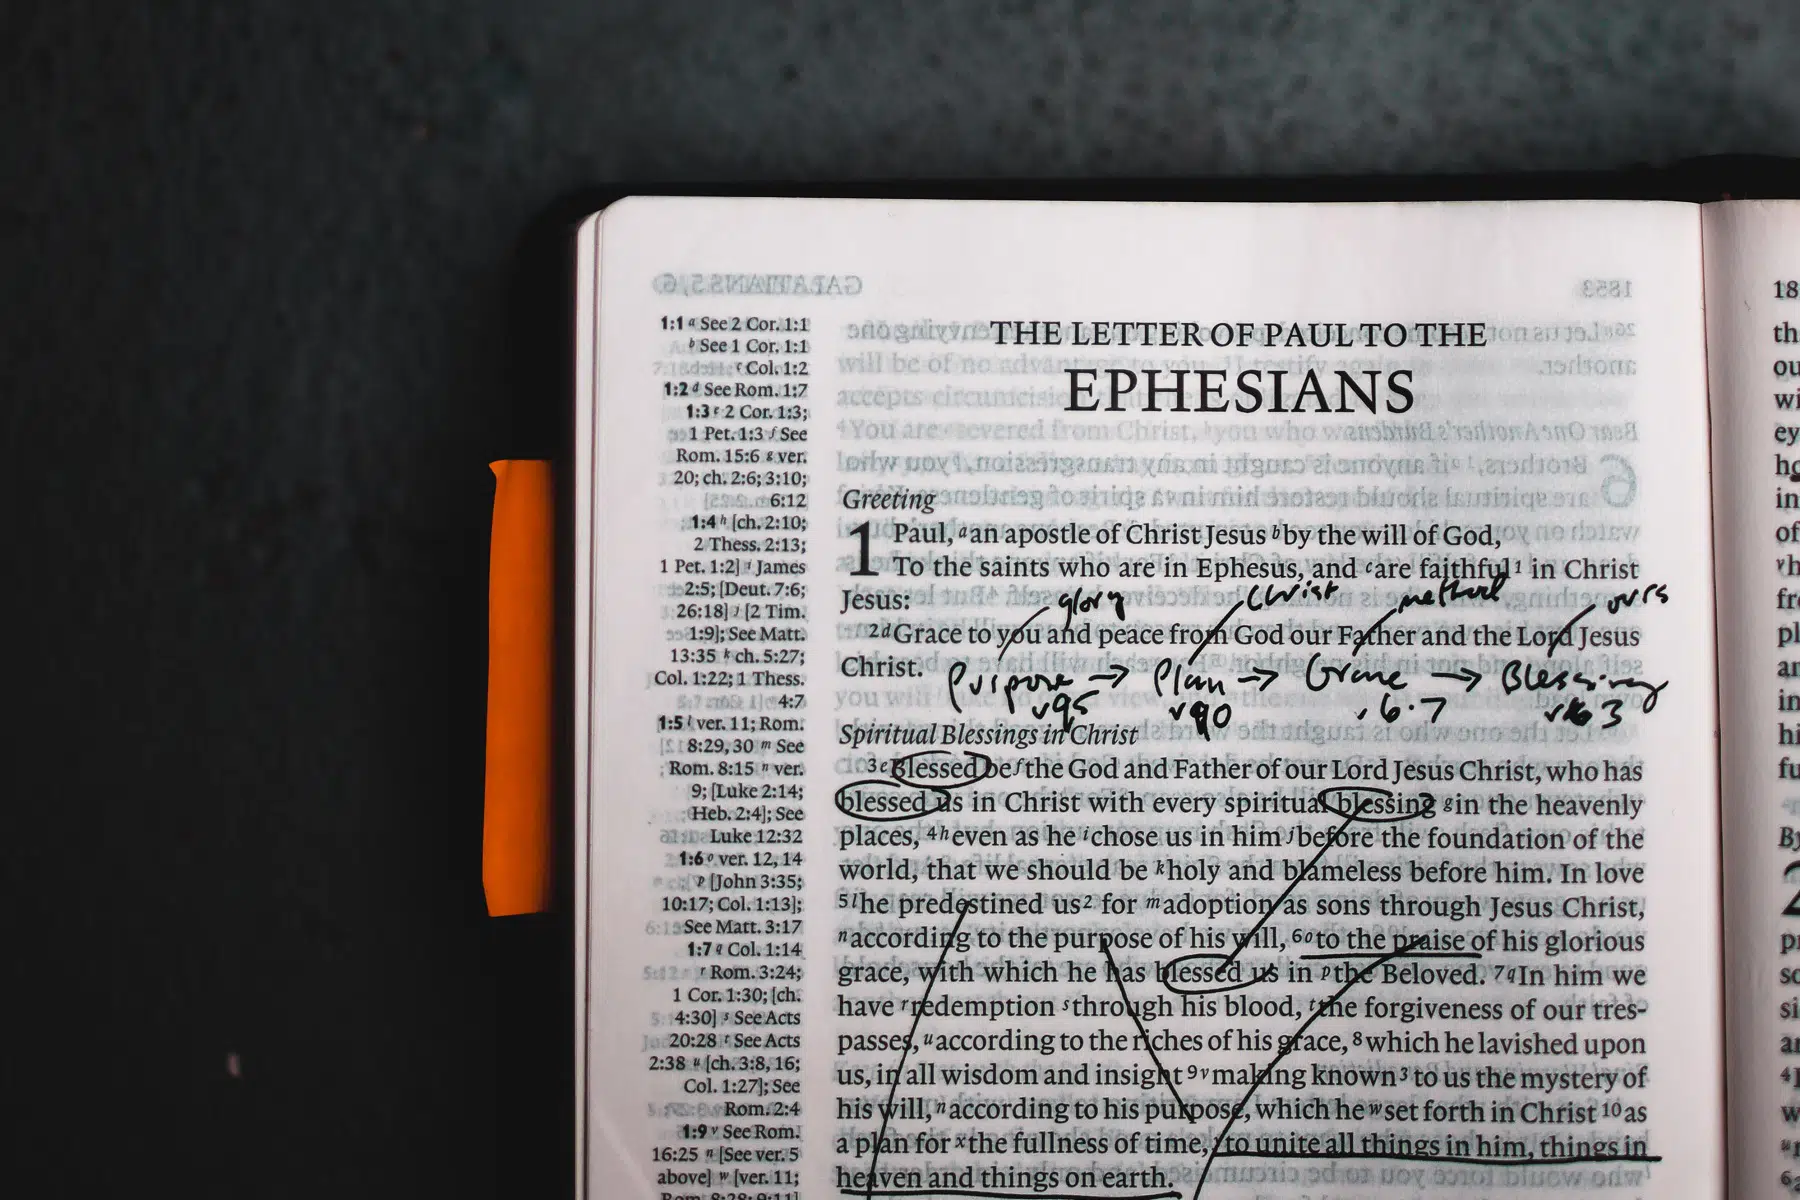 1:1 a See 2 Cor. 1:1
b See 1 Cor. 1:1
c Col. 1:2
1:2 d See Rom. 1:7
1:3 e 2 Cor. 1:3;
1 Pet. 1:3 f See
Rom. 15:6 g ver.
20; ch. 2:6; 3:10;
6:12
1:4 h [ch. 2:10;
2 Thess. 2:13;
1 Pet. 1:2] i James
2:5; [Deut. 7:6;
26:18] j [2 Tim.
1:9]; See Matt.
13:35 k ch. 5:27;
Col. 1:22; 1 Thess.
4:7
1:5 l ver. 11; Rom.
8:29, 30 m See
Rom. 8:15 n ver.
9; [Luke 2:14;
Heb. 2:4]; See
Luke 12:32
1:6 o ver. 12, 14
p [John 3:35;
10:17; Col. 1:13];
See Matt. 3:17
1:7 q Col. 1:14
r Rom. 3:24;
1 Cor. 1:30; [ch.
4:30] s See Acts
20:28 t See Acts
2:38 u [ch. 3:8, 16;
Col. 1:27]; See
Rom. 2:4
1:9 v See Rom.
16:25 n [See ver. 5
above] w [ver. 11;
THE LETTER OF PAUL TO THE
EPHESIANS
Greeting
1 Paul, a an apostle of Christ Jesus b by the will of God,
To the saints who are in Ephesus, and c are faithful 1 in Christ
Jesus:
glory Christ method ours
2 d Grace to you and peace from God our Father and the Lord Jesus
Christ.
Purpose → Plan → Grace → Blessing
v 6.7 3
Spiritual Blessings in Christ
3 e Blessed be f the God and Father of our Lord Jesus Christ, who has
blessed us in Christ with every spiritual blessing g in the heavenly
places, 4 h even as he i chose us in him j before the foundation of the
world, that we should be k holy and blameless before him. In love
5 l he predestined us 2 for m adoption as sons through Jesus Christ,
n according to the purpose of his will, 6 o to the praise of his glorious
grace, with which he has blessed us in p the Beloved. 7 q In him we
have r redemption s through his blood, t the forgiveness of our tres-
passes, u according to the riches of his grace, 8 which he lavished upon
us, in all wisdom and insight 9 v making known 3 to us the mystery of
his will, n according to his purpose, which he w set forth in Christ 10 as
a plan for x the fullness of time, y to unite all things in him, things in
heaven and things on earth.